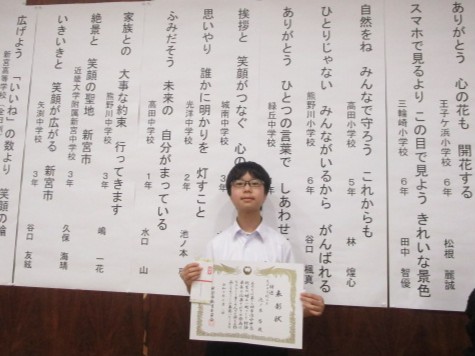 ありがとう　心の花も　開花する
王子ヶ浜小学校　６年　松根　麗誠
スマホで見るより　この目で見よう　きれいな景色
三輪崎小学校　６年　田中　智優
自然をね　みんなで守ろう　これからも
高田小学校　５年　林　煌心
ひとりじゃない　みんながいるから　がんばれる
熊野川小学校　６年　谷口　楓真
ありがとう　ひとつの言葉で　しあわせ
緑丘中学校
挨拶と　笑顔がつなぐ　心の
城南中学校　３年
思いやり　誰かに明かりを　灯すこと
光洋中学校　２年　池ノ本
ふみだそう　未来の　自分がまっている
高田中学校　１年　水口　山
家族との　大事な約束　行ってきます
熊野川中学校　３年　嶋　一花
絶景と　笑顔の聖地　新宮市
近畿大学附属新宮中学校　３年　久保　海晴
いきいきと　笑顔が広がる　新宮市
矢渕中学校　３年　谷口　友絃
広げよう　「いいね」の数より　笑顔の輪
新宮高等学校
表彰状